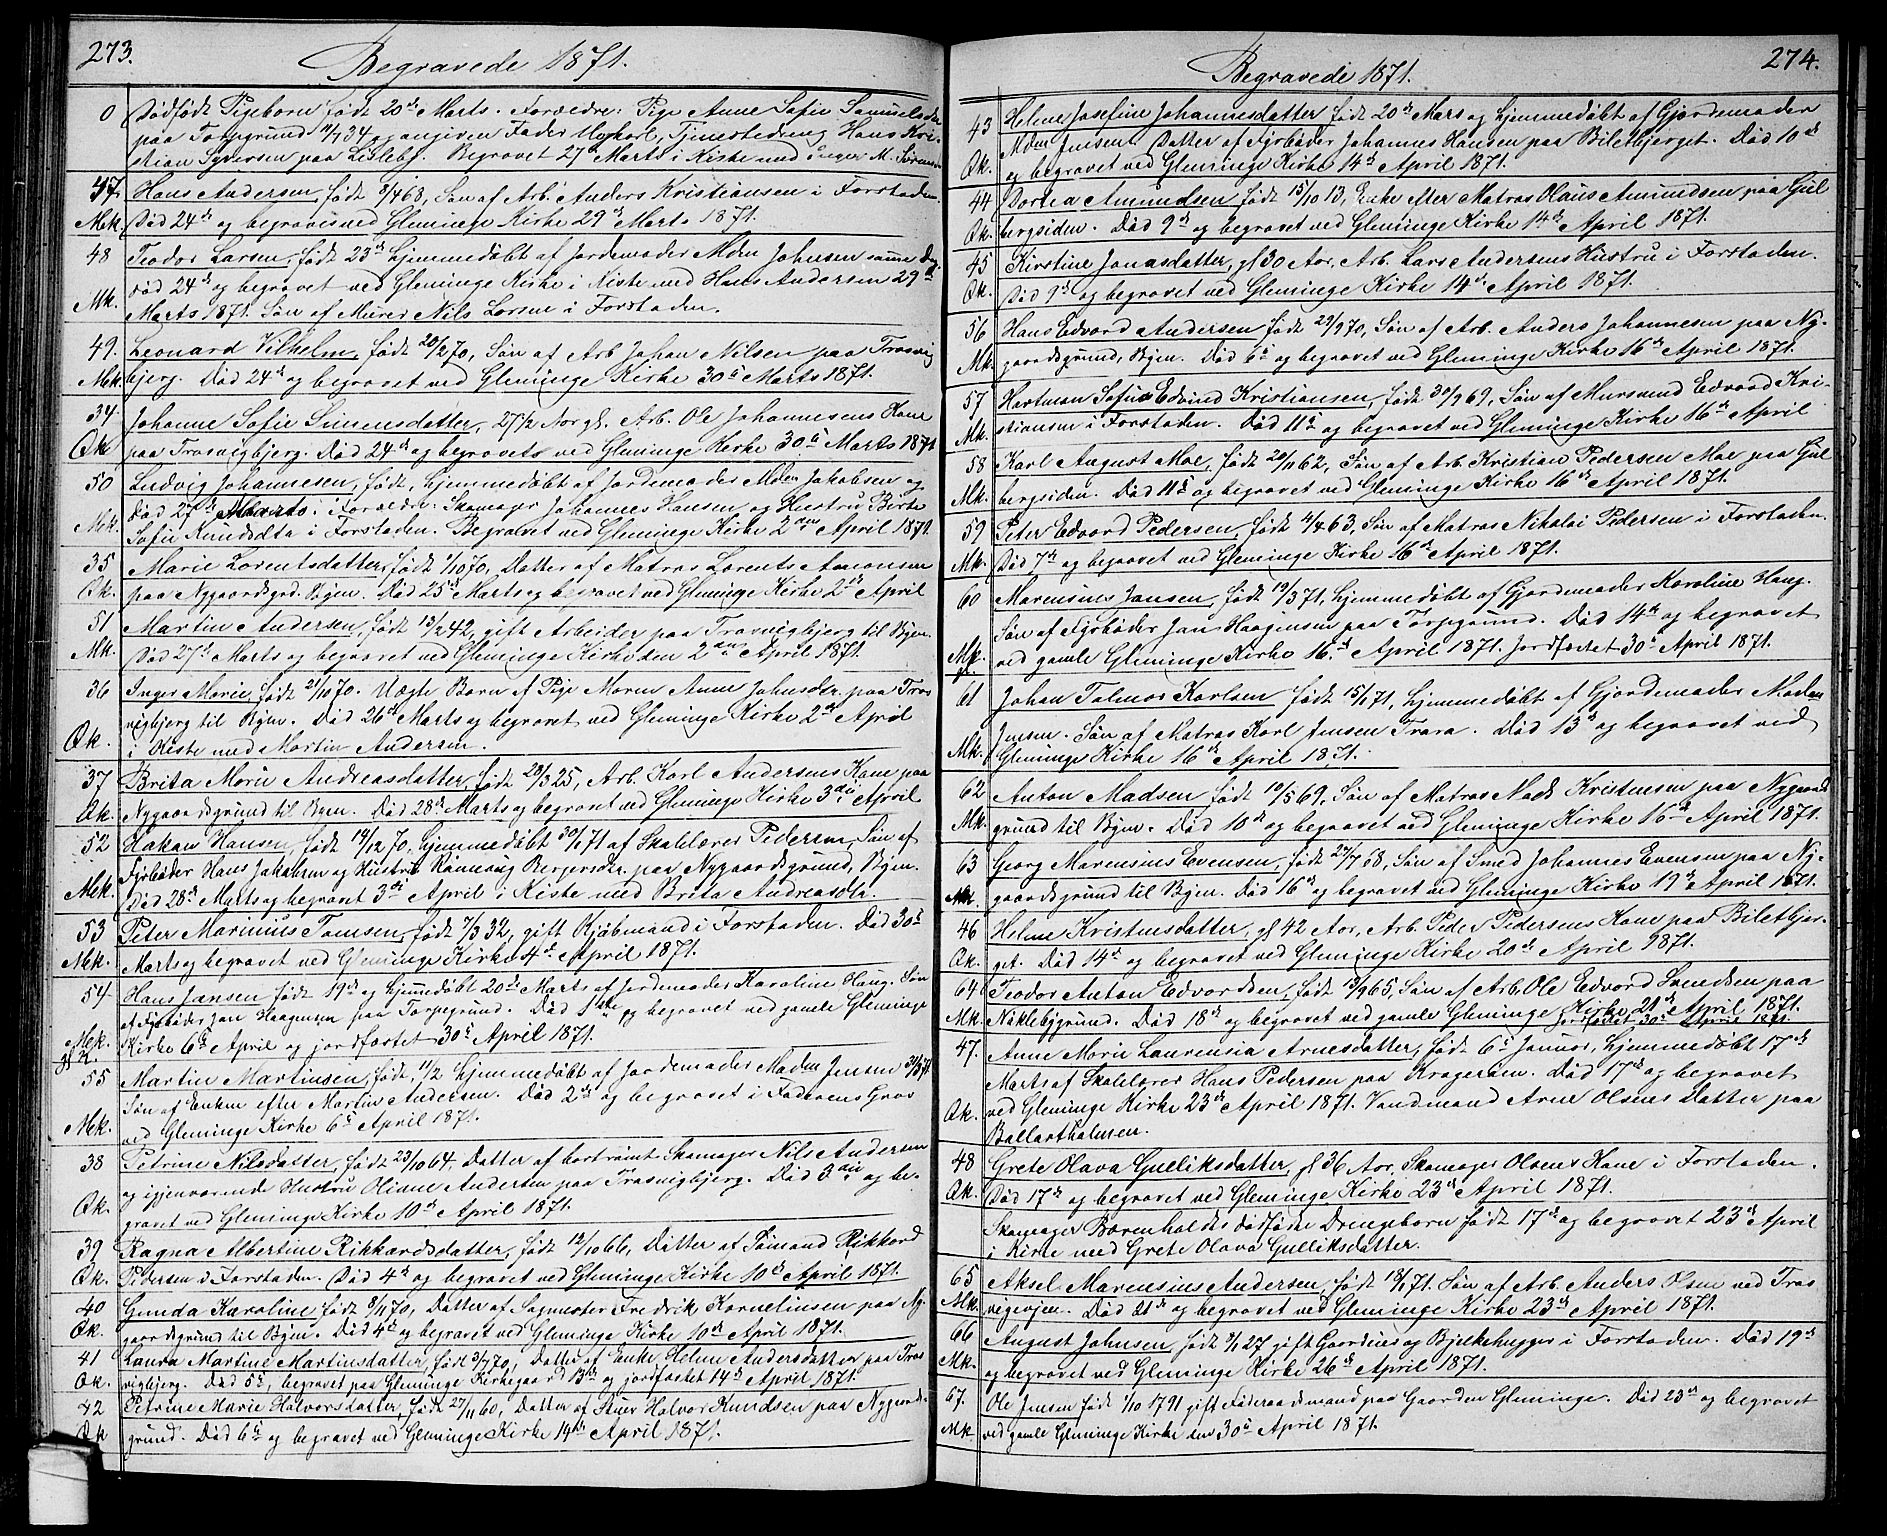 273.
Begravede 1871.
0 Dødfødt Pigebarn født 20de Marts. Forældre: Pige Anne Sofie Samuelsdtr
paa Torpgrund 34 og angiven Fader Ungkarl, Tjenestedreng Hans Kri-
stian Syversen paa Lisleby. Begravet 27 Marts i Kiste med Inger M. Sørensen
47 Hans Andersen, født 8/4 68, Søn af Arb. Anders Kristiansen i Forstaden.
Mk. Død 24de og begraves ved Gleminge Kirke 29de Marts 1871.
48 Teodor Larsen, født 23de hjemmedøbt af Jordemoder Mdm Johnsen samme Dag
død 24de og begravet ved Gleminge Kirke i Kiste med Hans Andersen 29de
Mk. Marts 1871. Søn af Murer Nils Larsen i Forstaden.
49. Leonard Vilhelm, født 20/2 70, Søn af Arb Johan Nilsen paa Trosvig
Mk. bjerg. Død 24de og begravet ved Gleminge Kirke 30te Marts 1871.
34. Johanne Sofie Simensdatter, 27 1/2 Aar gl. Arb. Ole Johannesens Kone
Qk paa Trosvigbjerg. Død 24de og begravets ved Gleminge Kirke 30te Marts 1871
50 Ludvig Johannesen, født, hjemmedøbt af Jordemoder Mdm Jakobsen og
død 27de Marts. Forældre: Skomager Johannes Hansen og Hustru Berte
Mk. Sofie Knudsdta i Forstaden. Begravet ved Gleminge Kirke 2den April 1871.
35 Marie Lorentsdatter, født 1/10 70, Datter af Matros Lorents Amonsen
Qk. paa Nygaardsgrd. Byen. Død 25de Marts og begravet ved Gleminge Kirke 2den April
51 Martin Andersen, født 13/2 42, gift Arbeider paa Trosvigbjerg til Byen.
Mk. Død 27de Marts og begravet ved Gleminge Kirke den 2den April 1871.
36 Inger Marie, født 21/10 70. Uægte Barn af Pige Maren Anne Johnsdtr. paa Tros
vigbjerg til Byen. Død 26de Marts og begravet ved Gleminge Kirke 2den April
Qk. i Kiste med Martin Andersen.
37 Brita Marie Andreasdatter, født 23/3 25, Arb. Karl Andersens Kone paa
Qk. Nygaardsgrund til Byen. Død 28de Marts og begravet ved Gleminge Kirke 3die April
52 Hakan Hansen, født 14/12 70, hjemmedøbt 30/1 71 af Skolelærer Pedersen, Søn af
Fyrbøder Hans Jakobsen og Hustru Rønnaug Bergersdtr. paa Nygaardsgrund, Byen.
Mk. Død 28de Marts og begravet 3die April i Kiste med Brita Andreasdta.
53 Peter Marinius Tomsen, født 7/3 32, gift Kjøbmand i Forstaden. Død 30te
Mk. Marts og begravet ved Gleminge Kirke 4de April 1871.
54. Hans Jansen født 19de og hjemmedøbt 20de Marts af Jordemoder Karoline Haug. Søn
af Fyrbøder Jan Haagensen paa Torpegrund. Død 1ste og begravet ved gamle Gleminge
Mk. Kirke 6te April og jordfæstet 30te April 1871.
gl K.
55 Martin Martinsen, født 11/2 hjemmedøbt af Jordemoder Madm Jensen 31/3 71
Søn af Enken efter Martin Andersen. Død 2den og begravet i Faderens Grav
Mk. ved Gleminge Kirke 6te April 1871.
38 Petrine Nilsdatter, født 23/10 64, Datter af bortrømt Skomager Nils Andersen
og igjenværende Hustru Oliane Andersen paa Trosvigbjerg. Død 3die og be-
Qk. gravet ved Gleminge Kirke 10de April 1871.
39 Ragna Albertine Rikkardsdatter, født 12/10 66, Datter af Sømand Rikkard
Qk. Pedersen i Forstaden. Død 4de og begravet ved Gleminge Kirke 10de April 1871.
40 Gunda Karoline, født 8/11 70, Datter af Sagmester Fredrik Kornelinsen paa Ny-
Qk. gaardsgrund til Byen. Død 4de og begravet ved Gleminge Kirke 10de April 1871.
41 Laura Martine Martinsdatter, født 3/7 70, Datter af Enke Helene Andersdatter paa Tros
Qk. vigbjerg. Død 5te, begravet paa Gleminge Kirkegaard 13de og jordfæstet 14de April 1871.
42 Petrine Marie Halvorsdatter, født 27/11 60, Datter af Stuer Halvor Knudsen paa Nygaards-
Qk grund. Død 6te og begravet ved Gleminge Kirke 14de April 1871.
274.
Begravede 1871.
43 Helene Josefine Johannesdatter født 20de Marts og hjemmedøbt af Gjordemoder
Mdm Jensen. Datter af Fyrbøder Johannes Hansen paa Biletbjerget. Død 10de
Qk. og begravet ved Gleminge Kirke 14de April 1871.
44 Dortea Amundsen født 15/10 13, Enke efter Matros Olaus Amundsen paa Gul
Qk. bergsiden. Død 9de og begravet ved Gleminge Kirke 14de April 1871.
45 Kirstine Jonasdatter, gl 30 Aar, Arb. Lars Andersens Hustru i Forstaden.
Qk. Død 9de og begravet ved Gleminge Kirke 14de April 1871.
56 Hans Edvard Andersen født 29/9 70, Søn af Arb. Anders Johannesen paa Ny-
Mk. gaardsgrund, Byen. Død 6te og begravet ved Gleminge Kirke 16de April 1871.
57 Hartman Sofus Edvind Kristiansen, født 30/9 69, Søn af Mursvend Edvard Kri-
Mk. stiansen i Forstaden. Død 11te og begravet ved Gleminge Kirke 16de April
58 Karl August Moe, født 20/11 62, Søn af Arb. Kristian Pedersen Moe paa Gul
Mk. bergsiden. Død 11te og begravet ved Gleminge Kirke 16de April 1871.
59 Peter Edvard Pedersen, født 4/4 63, Søn af Matros Nikolai Pedersen i Forstaden.
Mk. Død 7de og begravet ved Gleminge Kirke 16de April 1871.
60 Marensius Jansen, født 19/3 71, hjemmedøbt af Gjordemoder Karoline Haug.
Søn af Fyrbøder Jan Haagensen paa Torpegrund. Død 14de og begravet
Mk. ved gamle Gleminge Kirke 16de April 1871. Jordfæstet 30te April 1871.
gl.
61 Johan Talmor Karlsen født 15/1 71, hjemmedøbt af Gjordemoder Madm
Jensen. Søn af Matros Karl Jensen Trara. Død 13de og begravet ved
Mk. Gleminge Kirke 16de April 1871.
62 Anton Madsen født 19/5 69, Søn af Matros Mads Kristensen paa Nygaard
Mk. grund til Byen. Død 10de og begravet ved Gleminge Kirke 16de April 1871.
63 Georg Marensius Evensen, født 27/7 68, Søn af Smed Johannes Evensen paa Ny-
Mk. gaardsgrund til Byen. Død 16de og begravet ved Gleminge Kirke 19de April 1871.
46 Helene Kristensdatter, gl 42 Aar, Arb. Peder Pedersens Kone paa Biletbjer-
Qk. get. Død 14de og begravet ved Gleminge Kirke 20de April 1871.
64 Teodor Anton Edvardsen, født 13/9 65, Søn af Arb. Ole Edvard Svendsen paa
Mk. Niklebygrund. Død 18de og begravet ved gamle Gleminge Kirke 21de April 1871.
Jordfæstet 30te April 1871.
47. Anne Marie Laurensia Arnesdatter, født 6te Januar, hjemmedøbt 17de
Marts af Skolelærer Hans Pedersen paa Kragerøen. Død 17de og begravet
Qk. ved Gleminge Kirke 23de April 1871. Vandmand Arne Olsens Datter paa
Ballastholmen.
48 Grete Olava Gulliksdatter, gl 36 Aar, Skomager Olsens Kone i Forstaden.
Qk. Død 17de og begravet ved Gleminge Kirke 23de April 1871.
Skomager Bærenholdts dødfødte Drengebarn født 17de og begravet 23de April
i Kiste med Grete Olava Gulliksdatter.
65 Aksel Marensius Andersen, født 18/1 71. Søn af Arb. Anders Olsen ved Tros
Mk. vigveien. Død 21de og begravet ved Gleminge Kirke 23de April 1871.
66 August Johnsen, født 9/1 27 gift Gaardeier og Bjelkehugger i Forstaden. Død 19de
Mk. og begravet ved Gleminge Kirke 26de April 1871.
67. Ole Jensen født 1/10 1791 gift Føderaadsmand paa Gaarden Gleminge. Død 23de og begravet
Mk ved gamle Gleminge Kirke den 30te April 1871.